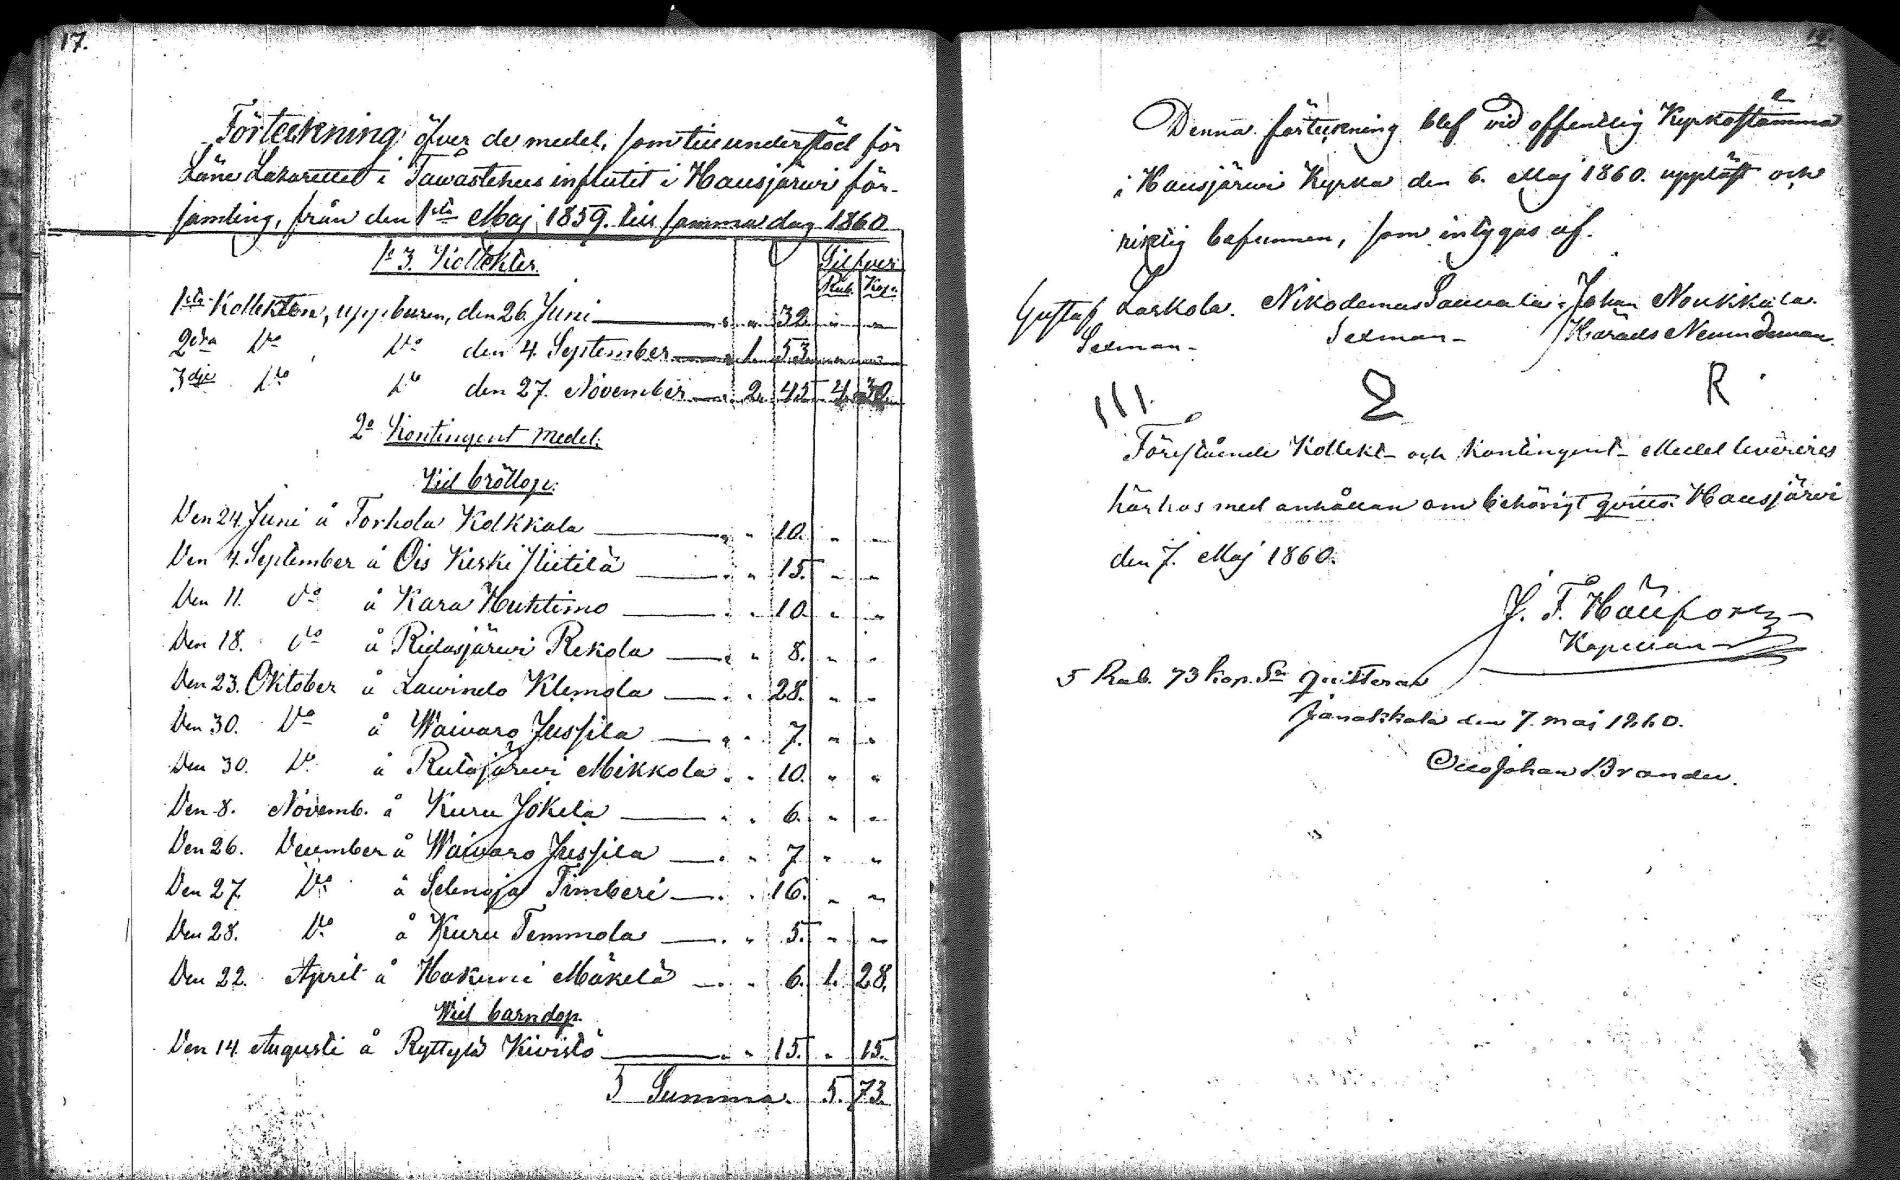 17.
Förteckning öfver de medel, som till understöd för
Läne Lazarettet i Tawastehus influtit i Hausjärwi för-
samling, från den 1sta Maj 1859. till samma dag 1860.
1o 3. Kollekter. Silfver
Rub. Kop.
1sta Kollekten, uppburen, den 26 Juni — " " 32 " "
2dra Do Do den 4. September — " 1. 53 " "
3dje Do Do den 27. November — " 2. 45 4. 30.
2o Kontingent medel.
Vid bröllop.
Den 24 Juni å Torhola Kolkkala — " " 10. " "
Den 4. September å Ois Keski Uitilä — " " 15. " "
Den 11. do å Kara Huhtimo — " " 10. " "
Den 18. do å Ridasjärwi Rekola — " " 8. " "
Den 23. Oktober å Lawinto Klemola — " " 28. " "
Den 30. Do å Waiwaro Jussila — " " 7. " "
Den 30. Do å Ridasjärwi Mikkola " " 10. " "
Den 8. Novemb. å Kuru Jokela — " " 6. " "
Den 26. December å Waiwaro Jussila — " " 7 " "
Den 27. Do å Selenoja Timberi — " " 16. " "
Den 28. Do å Kuru Temmola — " " 5. " "
Den 22. April å Hakuni Mäkelä — " " 6. 1. 28.
Vid barndop.
Den 14 Augusti å Ryttylä Kivistö — " " 15. " 15.
Summa. 5. 73.
Denna förteckning blef vid offentlig Kyrkostämma
i Hausjärwi Kyrka den 6. Maj 1860. uppläst och
riktig befunnen, som intygas af.
Gustaf Laskola. Nikodemus Saunala. Johan Noukkala.
Sexman. Sexman. Härads Nemndeman.
III. 2 R
Förestående Kollekt- och Kontingent- Medel levereres
härhos med anhållan om behörigt qvitto. Hausjärvi
den 7. Maj 1860.
J. F. Häufors
Kapellan
5 Rub. 73 kop. Sr qvitteras
Janakkala den 7. maj 1860.
Otto Johan Brander.